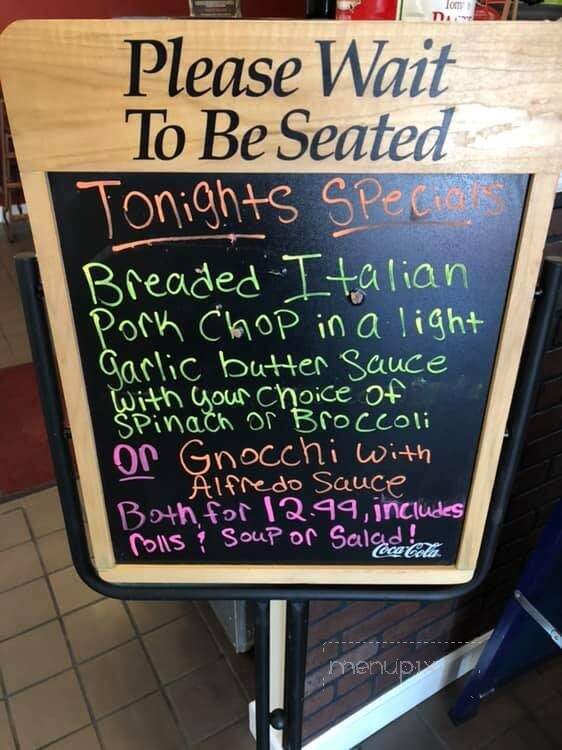 Please Wait
To Be Seated
Tonights Specials
Breaded Italian
Pork Chop in a light
garlic butter Sauce
with your choice of
spinach or Broccoli
or Gnocchi with
Alfredo Sauce
Both for 12.99, includes
rolls & Soup or Salad!
Coca-Cola
menupix